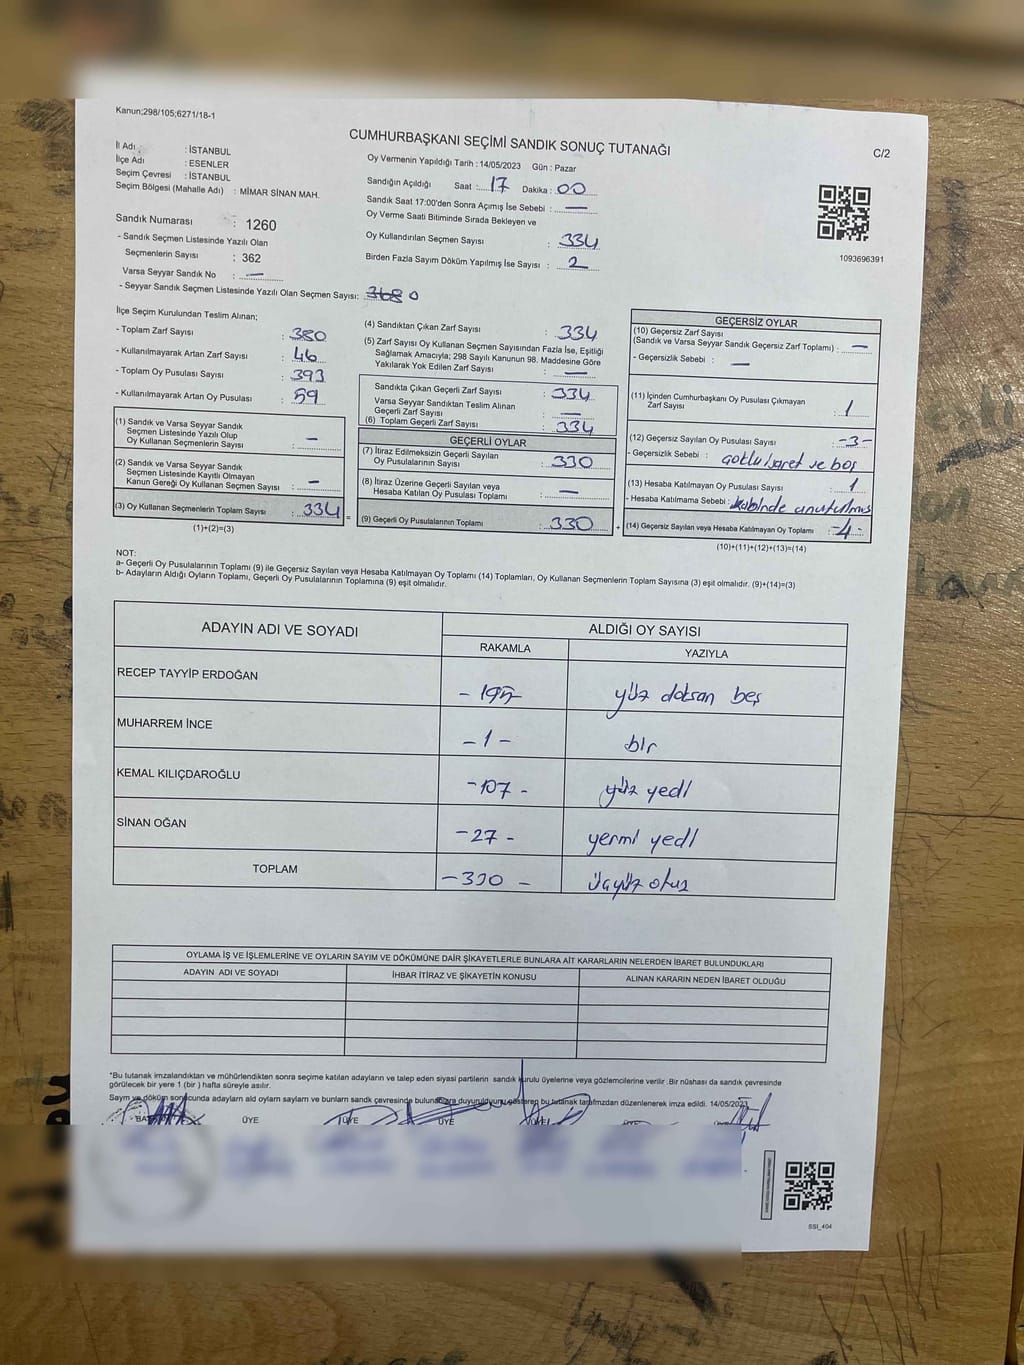 Kanun;298/105;6271/18-1
CUMHURBAŞKANI SEÇİMİ SANDIK SONUÇ TUTANAĞI
C/2
İl Adı : İSTANBUL
İlçe Adı : ESENLER
Seçim Çevresi : İSTANBUL
Seçim Bölgesi (Mahalle Adı) : MİMAR SİNAN MAH.
Sandık Numarası : 1260
- Sandık Seçmen Listesinde Yazılı Olan
Seçmenlerin Sayısı : 362
Varsa Seyyar Sandık No : —
- Seyyar Sandık Seçmen Listesinde Yazılı Olan Seçmen Sayısı: 0
Oy Vermenin Yapıldığı Tarih : 14/05/2023 Gün : Pazar
Sandığın Açıldığı Saat : 17 Dakika : 00
Sandık Saat 17:00'den Sonra Açımış İse Sebebi : —
Oy Verme Saati Bitiminde Sırada Bekleyen ve
Oy Kullandırılan Seçmen Sayısı : 334
Birden Fazla Sayım Döküm Yapılmış İse Sayısı : 2
1093696391
İlçe Seçim Kurulundan Teslim Alınan;
- Toplam Zarf Sayısı : 380
- Kullanılmayarak Artan Zarf Sayısı : 46
- Toplam Oy Pusulası Sayısı : 393
- Kullanılmayarak Artan Oy Pusulası : 59
(1) Sandık ve Varsa Seyyar Sandık
Seçmen Listesinde Yazılı Olup
Oy Kullanan Seçmenlerin Sayısı : —
(2) Sandık ve Varsa Seyyar Sandık
Seçmen Listesinde Kayıtlı Olmayan
Kanun Gereği Oy Kullanan Seçmen Sayısı : —
(3) Oy Kullanan Seçmenlerin Toplam Sayısı : 334
(1)+(2)=(3)
(4) Sandıktan Çıkan Zarf Sayısı : 334
(5) Zarf Sayısı Oy Kullanan Seçmen Sayısından Fazla İse, Eşitliği
Sağlamak Amacıyla; 298 Sayılı Kanunun 98. Maddesine Göre
Yakılarak Yok Edilen Zarf Sayısı : —
Sandıkta Çıkan Geçerli Zarf Sayısı : 334
Varsa Seyyar Sandıktan Teslim Alınan
Geçerli Zarf Sayısı : —
(6) Toplam Geçerli Zarf Sayısı : 334
GEÇERLİ OYLAR
(7) İtiraz Edilmeksizin Geçerli Sayılan
Oy Pusulalarının Sayısı : 330
(8) İtiraz Üzerine Geçerli Sayılan veya
Hesaba Katılan Oy Pusulası Toplamı : —
(9) Geçerli Oy Pusulalarının Toplamı : 330
GEÇERSİZ OYLAR
(10) Geçersiz Zarf Sayısı
(Sandık ve Varsa Seyyar Sandık Geçersiz Zarf Toplamı) : —
- Geçersizlik Sebebi : —
(11) İçinden Cumhurbaşkanı Oy Pusulası Çıkmayan
Zarf Sayısı : 1
(12) Geçersiz Sayılan Oy Pusulası Sayısı : -3-
- Geçersizlik Sebebi : ve boş
(13) Hesaba Katılmayan Oy Pusulası Sayısı : 1
- Hesaba Katılmama Sebebi : kabinde unutulmuş
(14) Geçersiz Sayılan veya Hesaba Katılmayan Oy Toplamı : -4-
(10)+(11)+(12)+(13)=(14)
NOT:
a- Geçerli Oy Pusulalarının Toplamı (9) ile Geçersiz Sayılan veya Hesaba Katılmayan Oy Toplamı (14) Toplamları, Oy Kullanan Seçmenlerin Toplam Sayısına (3) eşit olmalıdır. (9)+(14)=(3)
b- Adayların Aldığı Oyların Toplamı, Geçerli Oy Pusulalarının Toplamına (9) eşit olmalıdır.
ADAYIN ADI VE SOYADI
ALDIĞI OY SAYISI
RAKAMLA YAZIYLA
RECEP TAYYİP ERDOĞAN - 195 - yüz doksan beş
MUHARREM İNCE - 1 - bir
KEMAL KILIÇDAROĞLU - 107 - yüz yedi
SİNAN OĞAN - 27 - yermi yedi
TOPLAM - 330 - üçyüz otuz
OYLAMA İŞ VE İŞLEMLERİNE VE OYLARIN SAYIM VE DÖKÜMÜNE DAİR ŞİKAYETLERLE BUNLARA AİT KARARLARIN NELERDEN İBARET BULUNDUKLARI
ADAYIN ADI VE SOYADI İHBAR İTİRAZ VE ŞİKAYETİN KONUSU ALINAN KARARIN NEDEN İBARET OLDUĞU
*Bu tutanak imzalandıktan ve mühürlendikten sonra seçime katılan adayların ve talep eden siyasi partilerin sandık kurulu üyelerine veya gözlemcilerine verilir .Bir nüshası da sandık çevresinde
görülecek bir yere 1 (bir ) hafta süreyle asılır.
Sayım ve döküm sonucunda adayların ald oyların sayları ve bunların sandk çevresinde bulunanlara duyurulduyunu gösteren bu tutanak tarafmzdan düzenlenerek imza edildi. 14/05/2023
ÜYE ÜYE ÜYE ÜYE
SSI_404